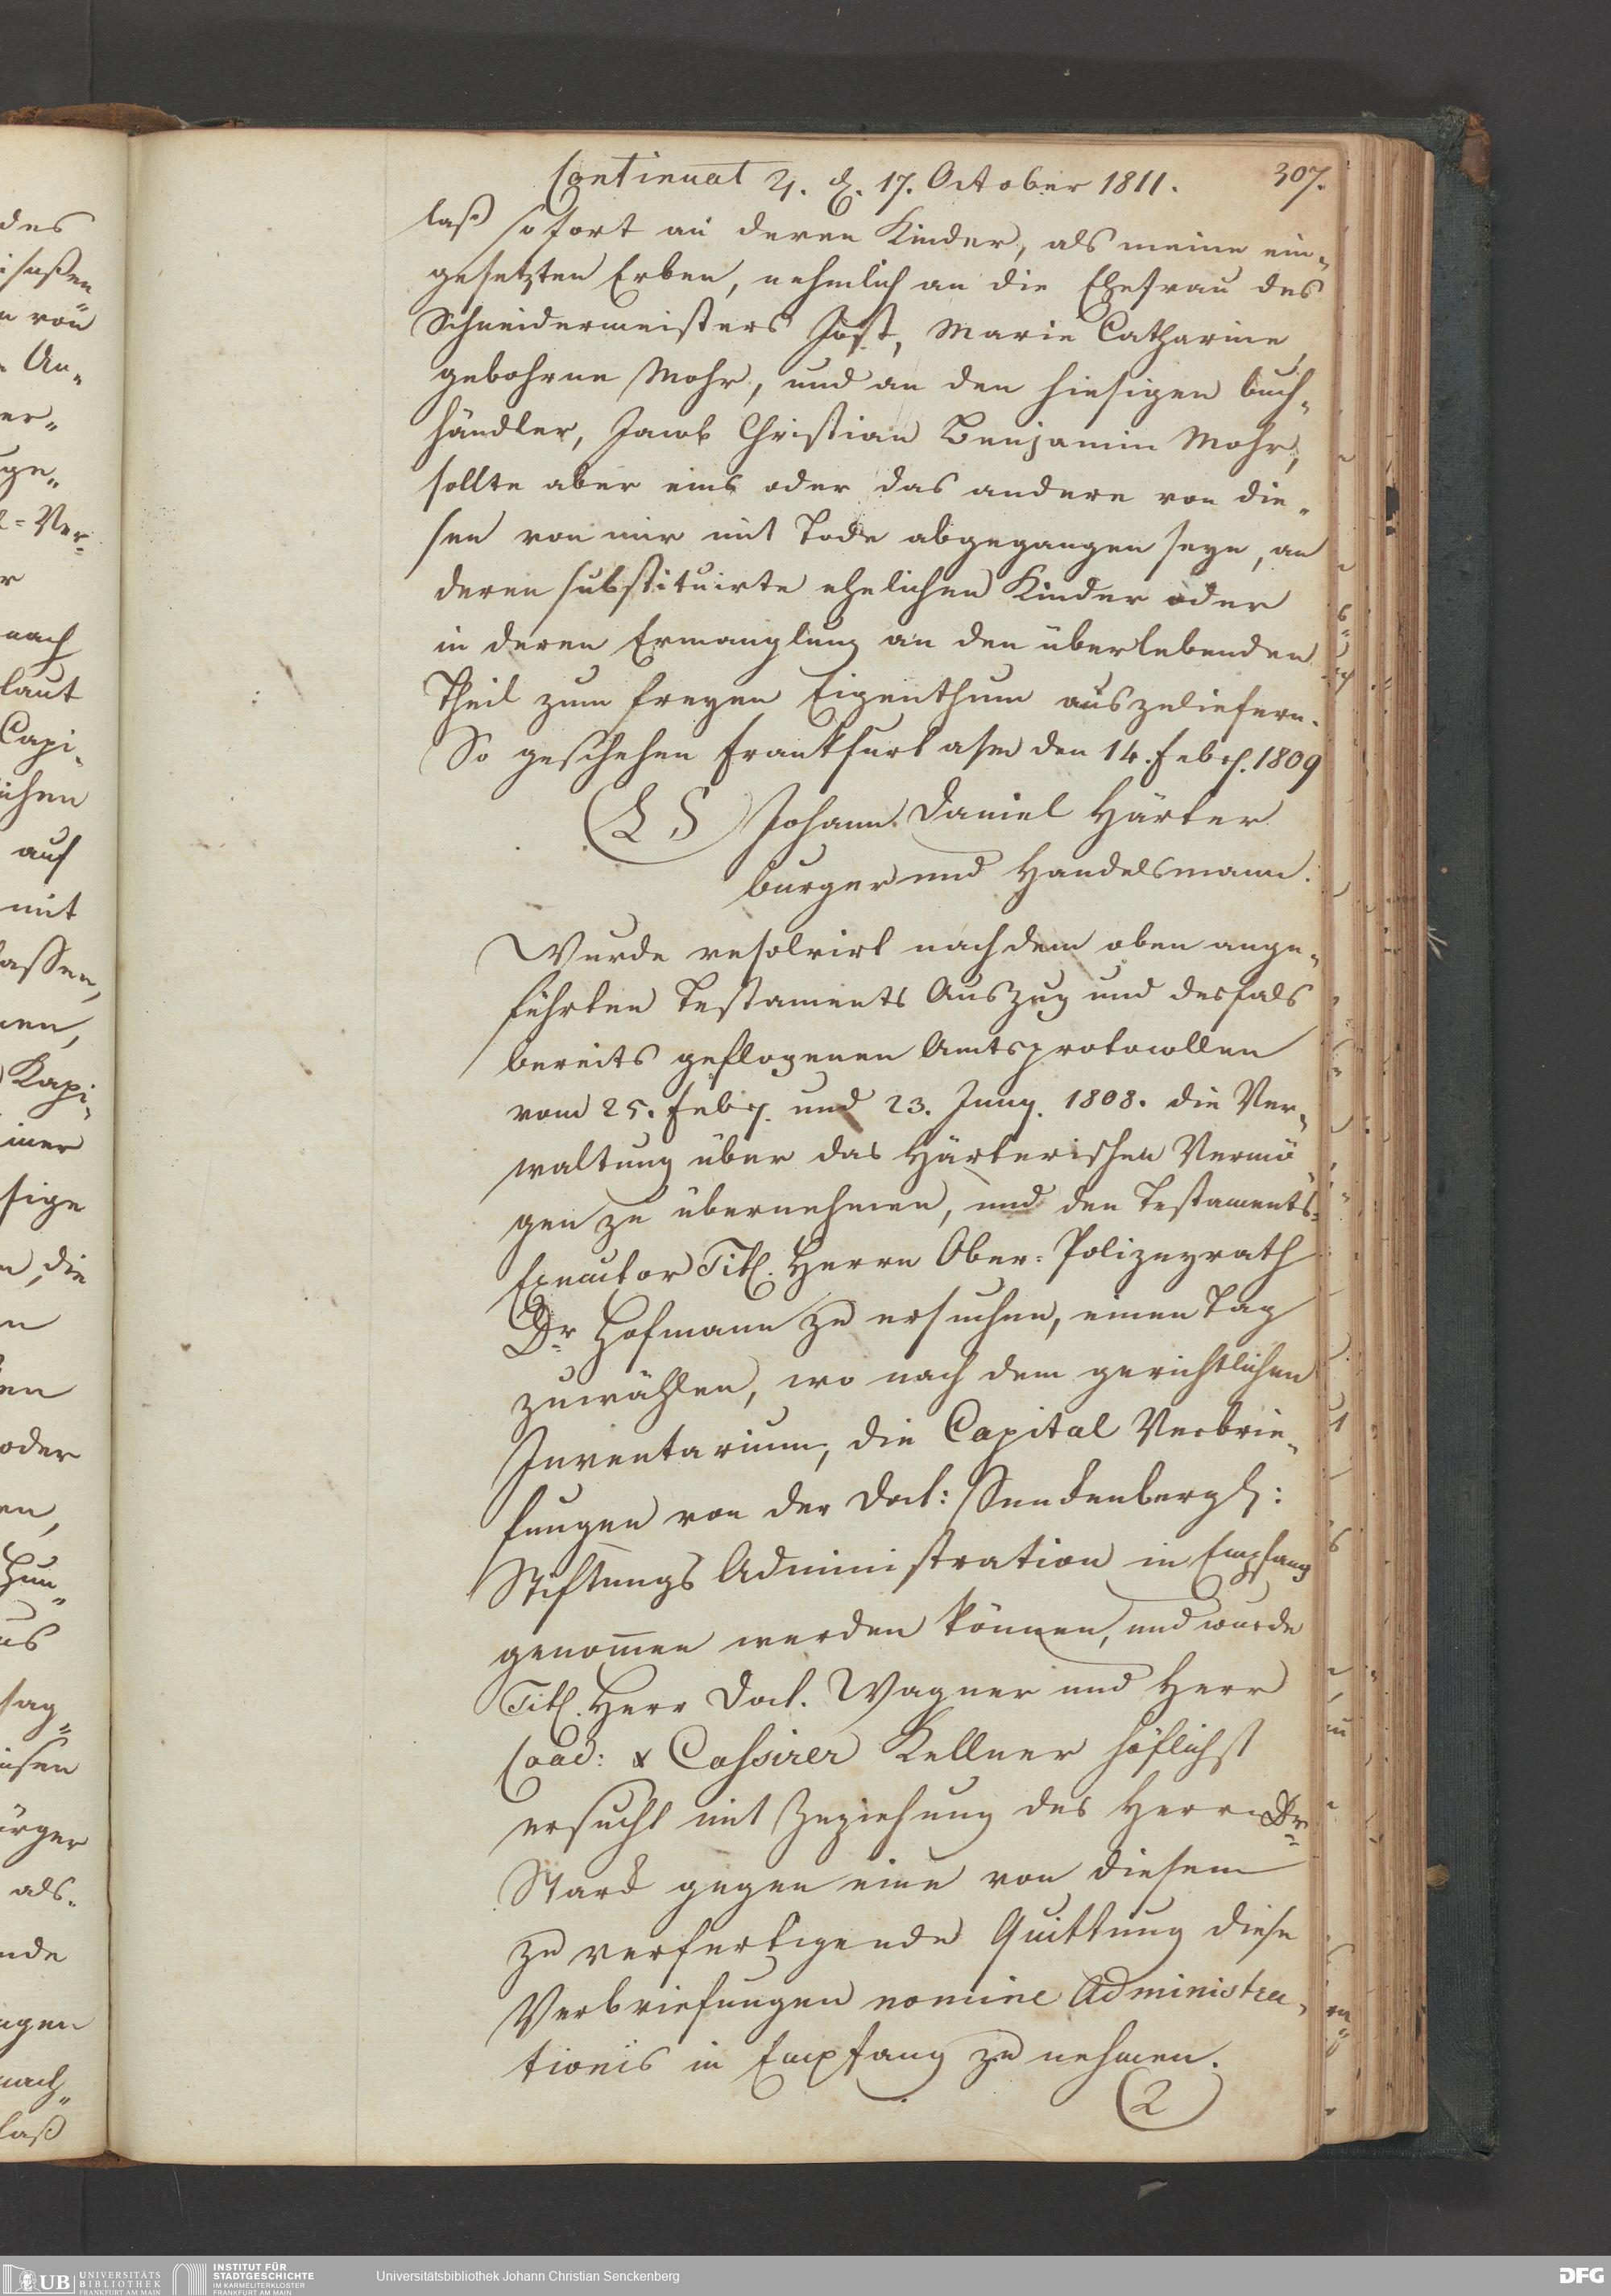 Continuat 4. d. 17. October 1811.
307.
laß sofort an deren Kinder, als meine ein„
gesetzten Erben, nehmlich an die Ehefrau des
Schneidermeisters Jost, Marie Catharine,
gebohrne Mohr, und an den hiesigen Buch„
händler, Jacob Christian Benjamin Mohr,
sollte aber eins oder das andere von die„
sen von mir mit Tode abgegangen seyn, an
deren substituirte ehelichen Kinder oder
in deren Ermanglung an den überlebenden
Theil zum freyen Eigenthum auszuliefern.
So geschehen Frankfurt a/m den 14. Febr. 1809
(L S) Johann Daniel Härter
burger und Handelsmann.
Wurde resolvirt nach dem oben ange„
führten Testaments Auszug und desfals
bereits geflogenen Amtsprotocollen
vom 25. Febr. und 23. Juny. 1808. die Ver„
waltung über das Härterischen Vermö
gen zu übernehmen, und den Testaments„
Executor Titl. Herrn Ober-Polizeyrath
Dr Hofmann zu ersuchen, einen Tag
zuwählen, wo nach dem gerichtlichen
Inventarium, die Capital Verbrie„
fungen von der Doct: Senckenbergl:
Stiftungs Administration in Empfang
genom̅en werden können, und wurde
Titl. Herr Doct. Wagner und Herr
Coad: & Cassirer Kellner höflichst
ersucht mit Zuziehung des Herrn Dr
Stard gegen eine von diesem
zu verfertigende Quittung diese
Verbriefungen nomine Administra„
tionis in Empfang zu nehmen.
(2)
des
An„
er„
nach
laut
Capi„
auf
mit
Kapi„
n, die
oder
als
laß
UB UNIVERSITÄTS
BIBLIOTHEK
FRANKFURT AM MAIN
INSTITUT FÜR
STADTGESCHICHTE
IM KARMELITERKLOSTER
FRANKFURT AM MAIN
Universitätsbibliothek Johann Christian Senckenberg
DFG